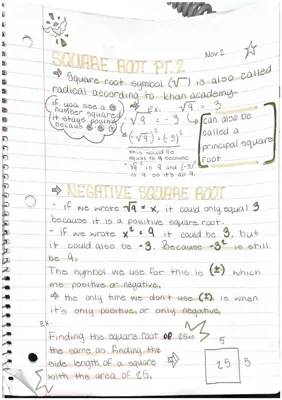 Nov. 2
SQUARE ROOT PT. 2
⇒ Square root symbol (√) is also called
radical according to khan academy.
if you see a
number squared
it stays positive
becaus
Ex.
√9 = 3
-√9 = -3
(-√9)² = (-3)²
this would be
equal to 9 because
-√9² is 9 and (-3)²
is 9 so it's all 9.
can also be
called a
principal square
root
⇒ NEGATIVE SQUARE ROOT
- if we wrote √9 = x, it could only equal 3
because it is a positive square root.
- if we wrote x² = 9 it could be 3, but
it could also be -3. Because -3² is still
be 9.
The symbol we use for this is (±) which
me positive or negative.
⇒ the only time we don't use (±) is when
it's only positive, or only negative.
Ex.
Finding the square root of 25 is
the same as finding the
side length of a square
with the area of 25.
5
25 5